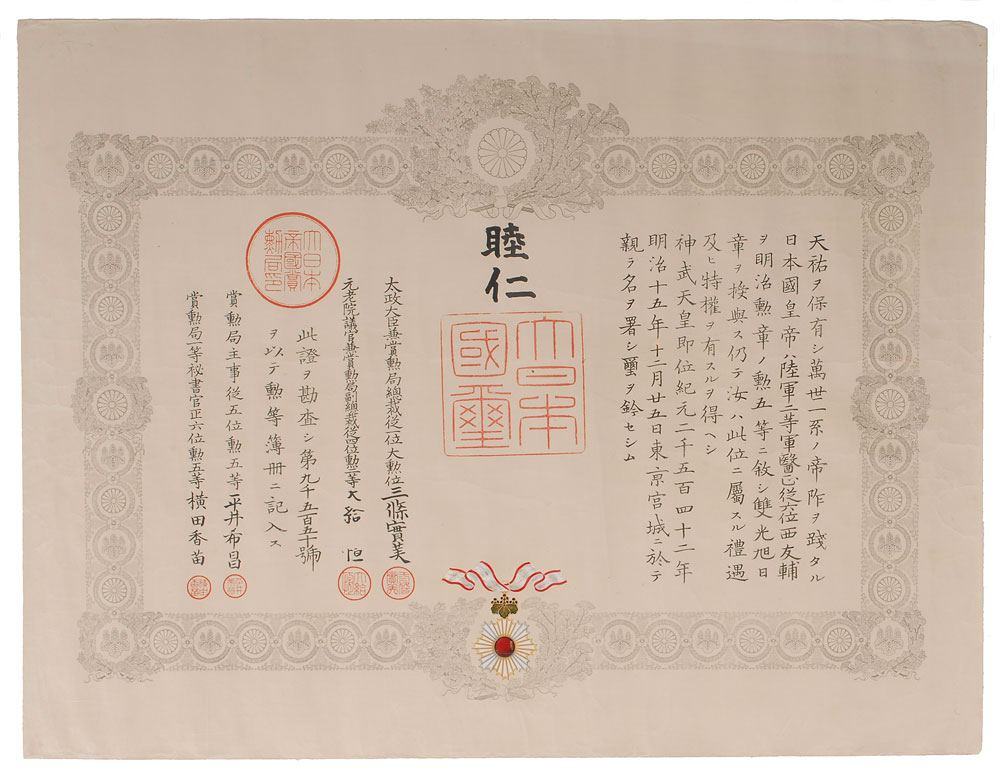 天祐ヲ保有シ萬世一系ノ帝阼ヲ踐タル
日本國皇帝ハ陸軍二等軍醫正從六位西友輔
ヲ明治勲章ノ勲五等ニ敘シ雙光旭日
章ヲ授與ス仍テ汝ハ此位ニ屬スル禮遇
及ヒ特權ヲ有スルヲ得ヘシ
神武天皇即位紀元二千五百四十二年
明治十五年十二月廿五日東京宮城ニ於テ
親ラ名ヲ署シ璽ヲ鈐セシム
睦仁
大日本
國璽
太政大臣兼賞勲局總裁從一位大勲位三條實美
元老院議官兼賞勲局副總裁從四位勲二等大給恒
此證ヲ勘査シ第九千五百五十號
ヲ以テ勲等簿冊ニ記入ス
賞勲局主事從五位勲五等平井希昌
賞勲局一等秘書官正六位勲五等横田香苗
大日本
帝國賞
勲局印